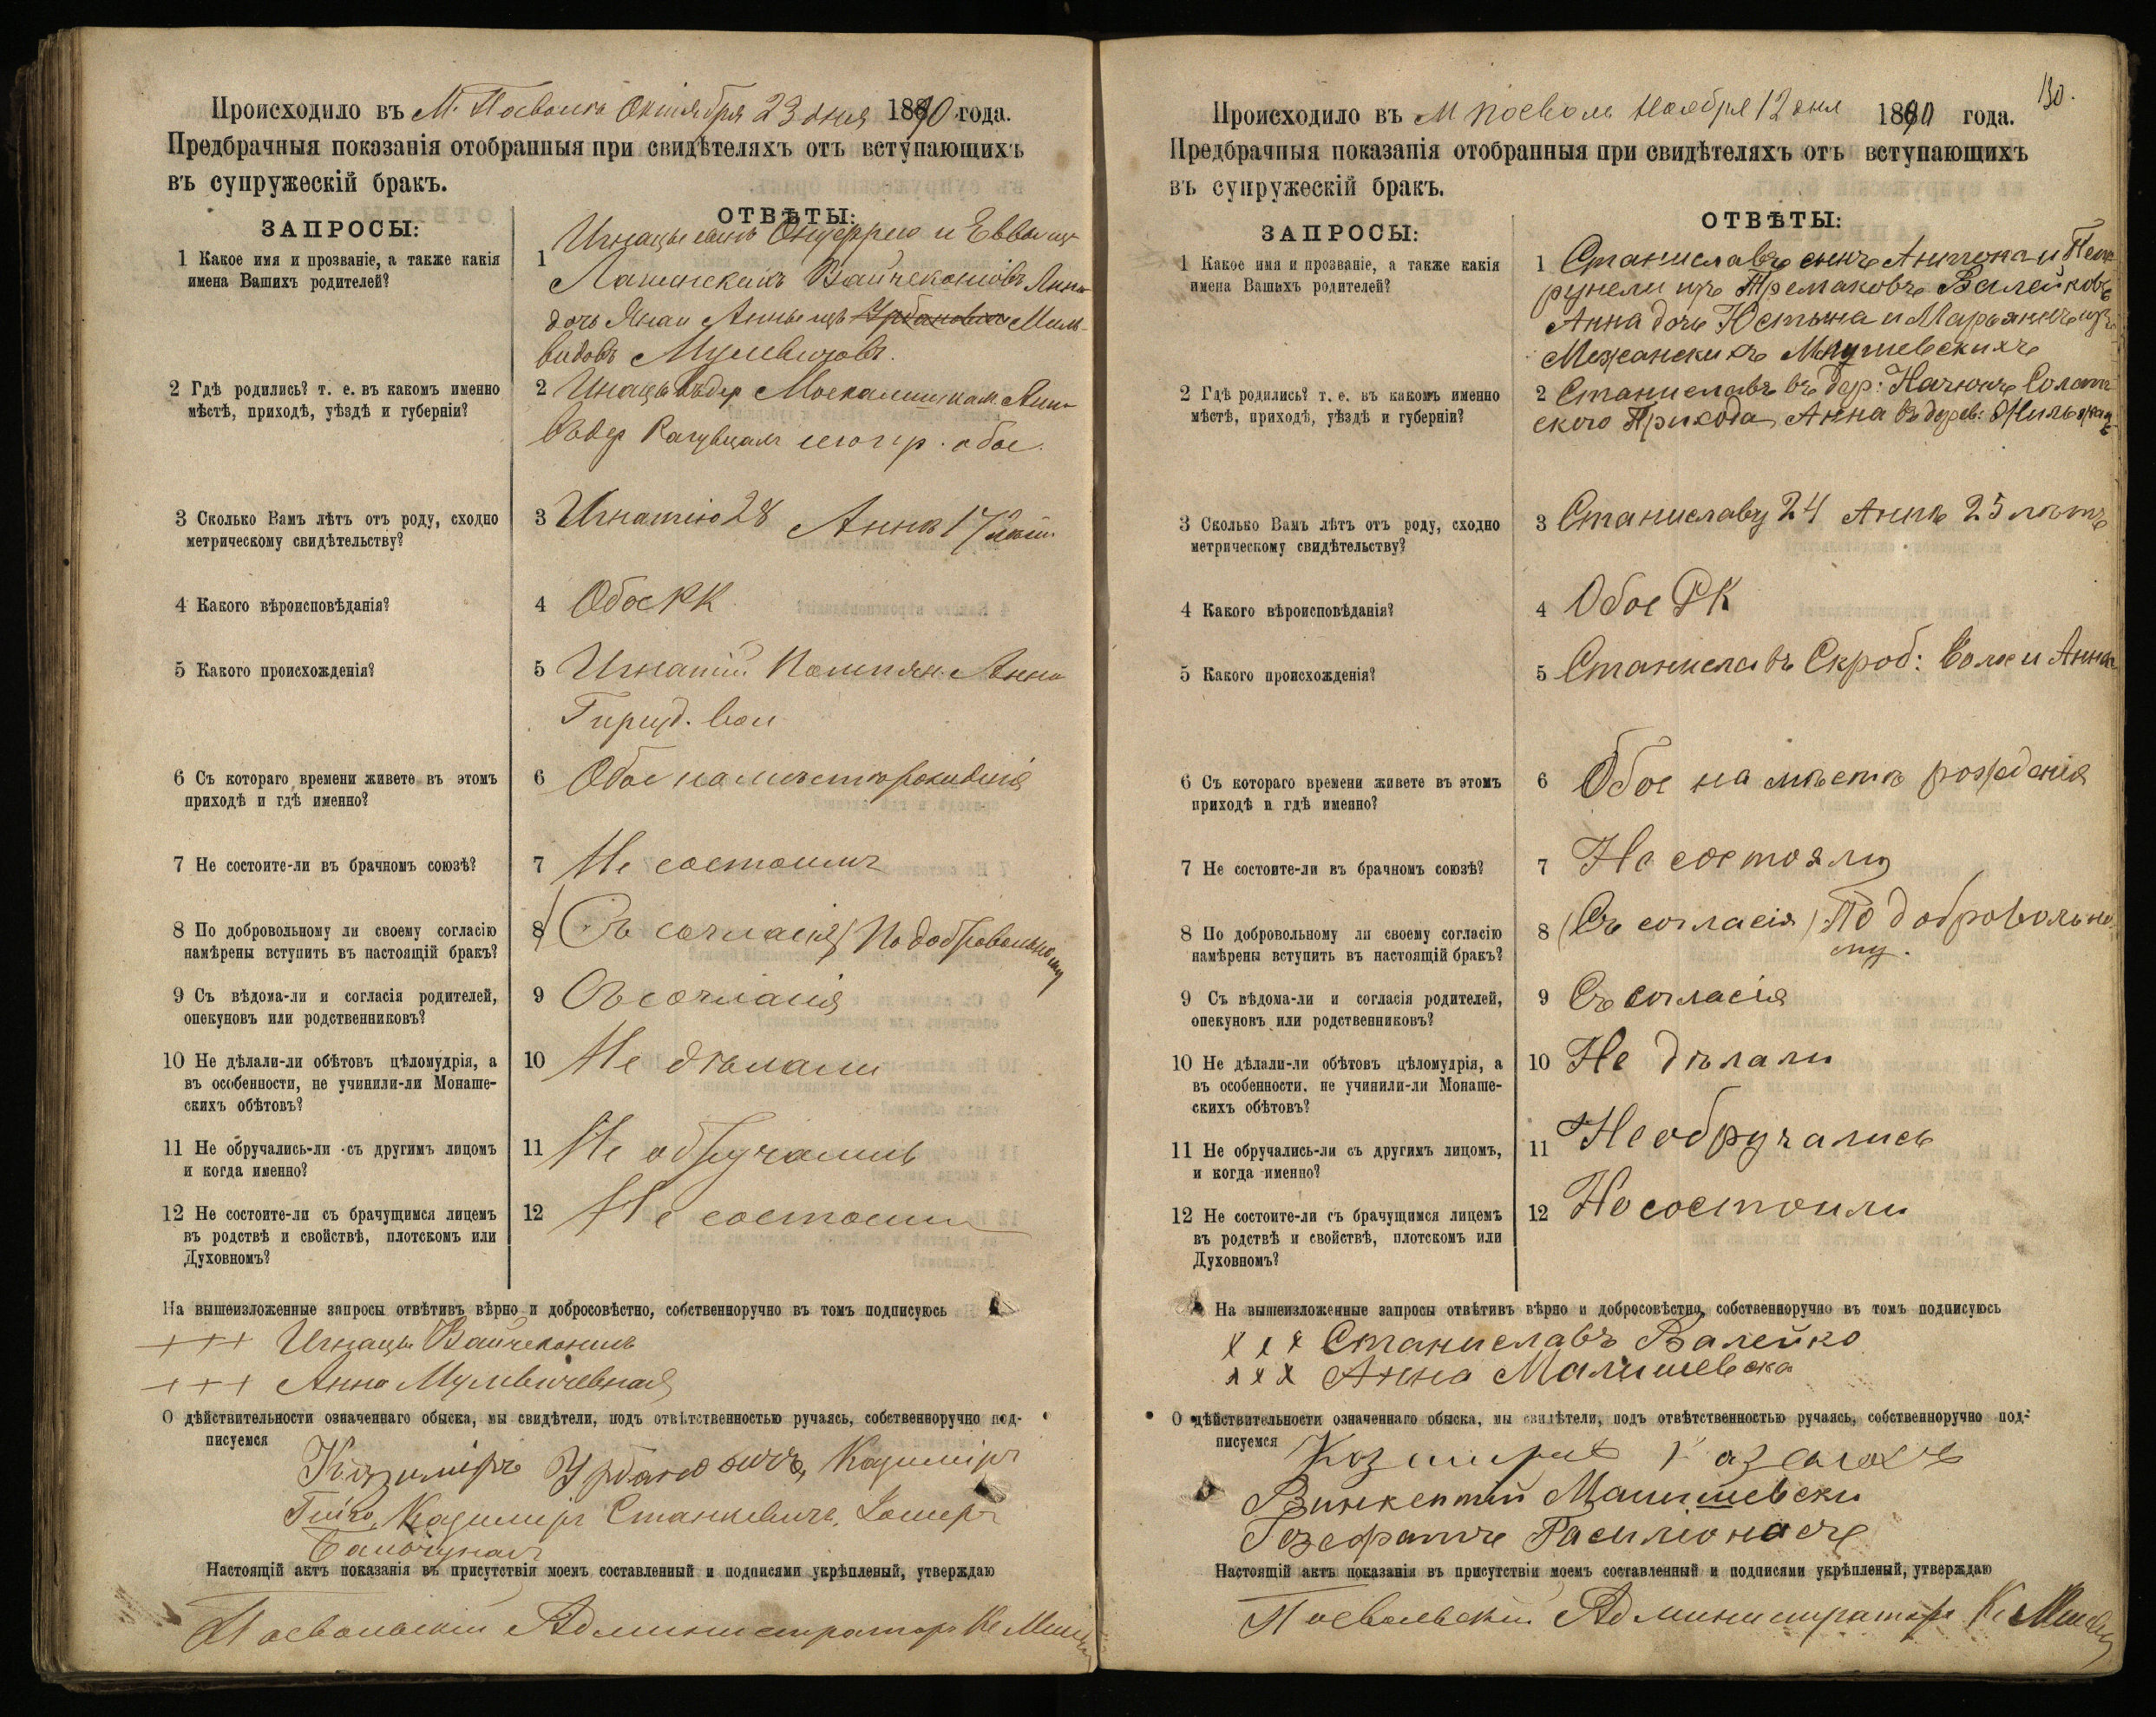 Происходило въ М. Посволь Октября 23 дня 1890 года.
Предбрачныя показанія отобранныя при свидѣтеляхъ отъ вступающихъ
въ супружескій бракъ.
ЗАПРОСЫ:
ОТВѢТЫ:
1 Какое имя и прозваніе, а также какія
имена Вашихъ родителей?
1 Игнацы сынъ Онуфрію и
Вайчекониовъ Анна
дочь Анны изъ Урбановичъ
2 Гдѣ родились? т. е. въ какомъ именно
мѣстѣ, приходѣ, уѣздѣ и губерніи?
2 Игнацы въ дер
въ дер сего пр. обое.
3 Сколько Вамъ лѣтъ отъ роду, сходно
метрическому свидѣтельству?
3 Игнатію 28 Аннѣ 17 лѣтъ
4 Какого вѣроисповѣданія?
4 Обое РК
5 Какого происхожденія?
5 Игнатій Помпян. Анна
вол
6 Съ котораго времени живете въ этомъ
приходѣ и гдѣ именно?
6 Обое на мѣстѣ рожденія
7 Не состоите-ли въ брачномъ союзѣ?
7 Не состоимъ
8 По добровольному ли своему согласію
намѣрены вступить въ настоящій бракъ?
8 (Съ согласія) По добровольному
9 Съ вѣдома-ли и согласія родителей,
опекуновъ или родственниковъ?
9 Съ согласія
10 Не дѣлали-ли обѣтовъ цѣломудрія, а
въ особенности, не учинили-ли Монаше-
скихъ обѣтовъ?
10 Не дѣлали
11 Не обручались-ли съ другимъ лицомъ
и когда именно?
11 Не обручались
12 Не состоите-ли съ брачущимся лицемъ
въ родствѣ и свойствѣ, плотскомъ или
Духовномъ?
12 Не состоими
На вышеизложенные запросы отвѣтивъ вѣрно и добросовѣстно, собственноручно въ томъ подписуюсь
+++ Игнацы Вайчеконисъ
+++ Анна
О дѣйствительности означеннаго обыска, мы свидѣтели, подъ отвѣтственностью ручаясь, собственноручно под-
писуемся
Казимиръ Урбановичъ, Казимиръ
Казимиръ Станкевичъ,
Настоящій актъ показанія въ присутствіи моемъ составленный и подписями укрѣпленый, утверждаю
Посвольскій Администраторъ К
130.
Происходило въ М Посволь Ноября 12 дня 1890 года.
Предбрачныя показанія отобранныя при свидѣтеляхъ отъ вступающихъ
въ супружескій бракъ.
ЗАПРОСЫ:
ОТВѢТЫ:
1 Какое имя и прозваніе, а также какія
имена Вашихъ родителей?
1 Станиславъ сынъ Антона и Пет-
рунели изъ Валейковъ
Анна дочь Юстына и Марьянны изъ
2 Гдѣ родились? т. е. въ какомъ именно
мѣстѣ, приходѣ, уѣздѣ и губерніи?
2 Станиславъ въ дер: Солат-
ского Прихода, Анна въ дерев:
3 Сколько Вамъ лѣтъ отъ роду, сходно
метрическому свидѣтельству?
3 Станиславу 24 Аннѣ 25 лѣтъ
4 Какого вѣроисповѣданія?
4 Обое РК
5 Какого происхожденія?
5 Станиславъ Скроб: Воло и Анна
6 Съ котораго времени живете въ этомъ
приходѣ и гдѣ именно?
6 Обое на мѣстѣ рожденія
7 Не состоите-ли въ брачномъ союзѣ?
7 Не состояли
8 По добровольному ли своему согласію
намѣрены вступить въ настоящій бракъ?
8 (Съ согласія) По добровольно-
му.
9 Съ вѣдома-ли и согласія родителей,
опекуновъ или родственниковъ?
9 Съ согласія
10 Не дѣлали-ли обѣтовъ цѣломудрія, а
въ особенности, не учинили-ли Монаше-
скихъ обѣтовъ?
10 Не дѣлали
11 Не обручались-ли съ другимъ лицомъ,
и когда именно?
11 Не обручались
12 Не состоите-ли съ брачущимся лицемъ
въ родствѣ и свойствѣ, плотскомъ или
Духовномъ?
12 Не состоили
На вышеизложенные запросы отвѣтивъ вѣрно и добросовѣстно, собственноручно въ томъ подписуюсь
ххх Станиславъ Валейко
ххх Анна Малишевска
О дѣйствительности означеннаго обыска, мы свидѣтели, подъ отвѣтственностью ручаясь, собственноручно под-
писуемся
Винкентій Малишевски
Настоящій актъ показанія въ присутствіи моемъ составленный и подписями укрѣпленый, утверждаю
Посвольскій Администраторъ К